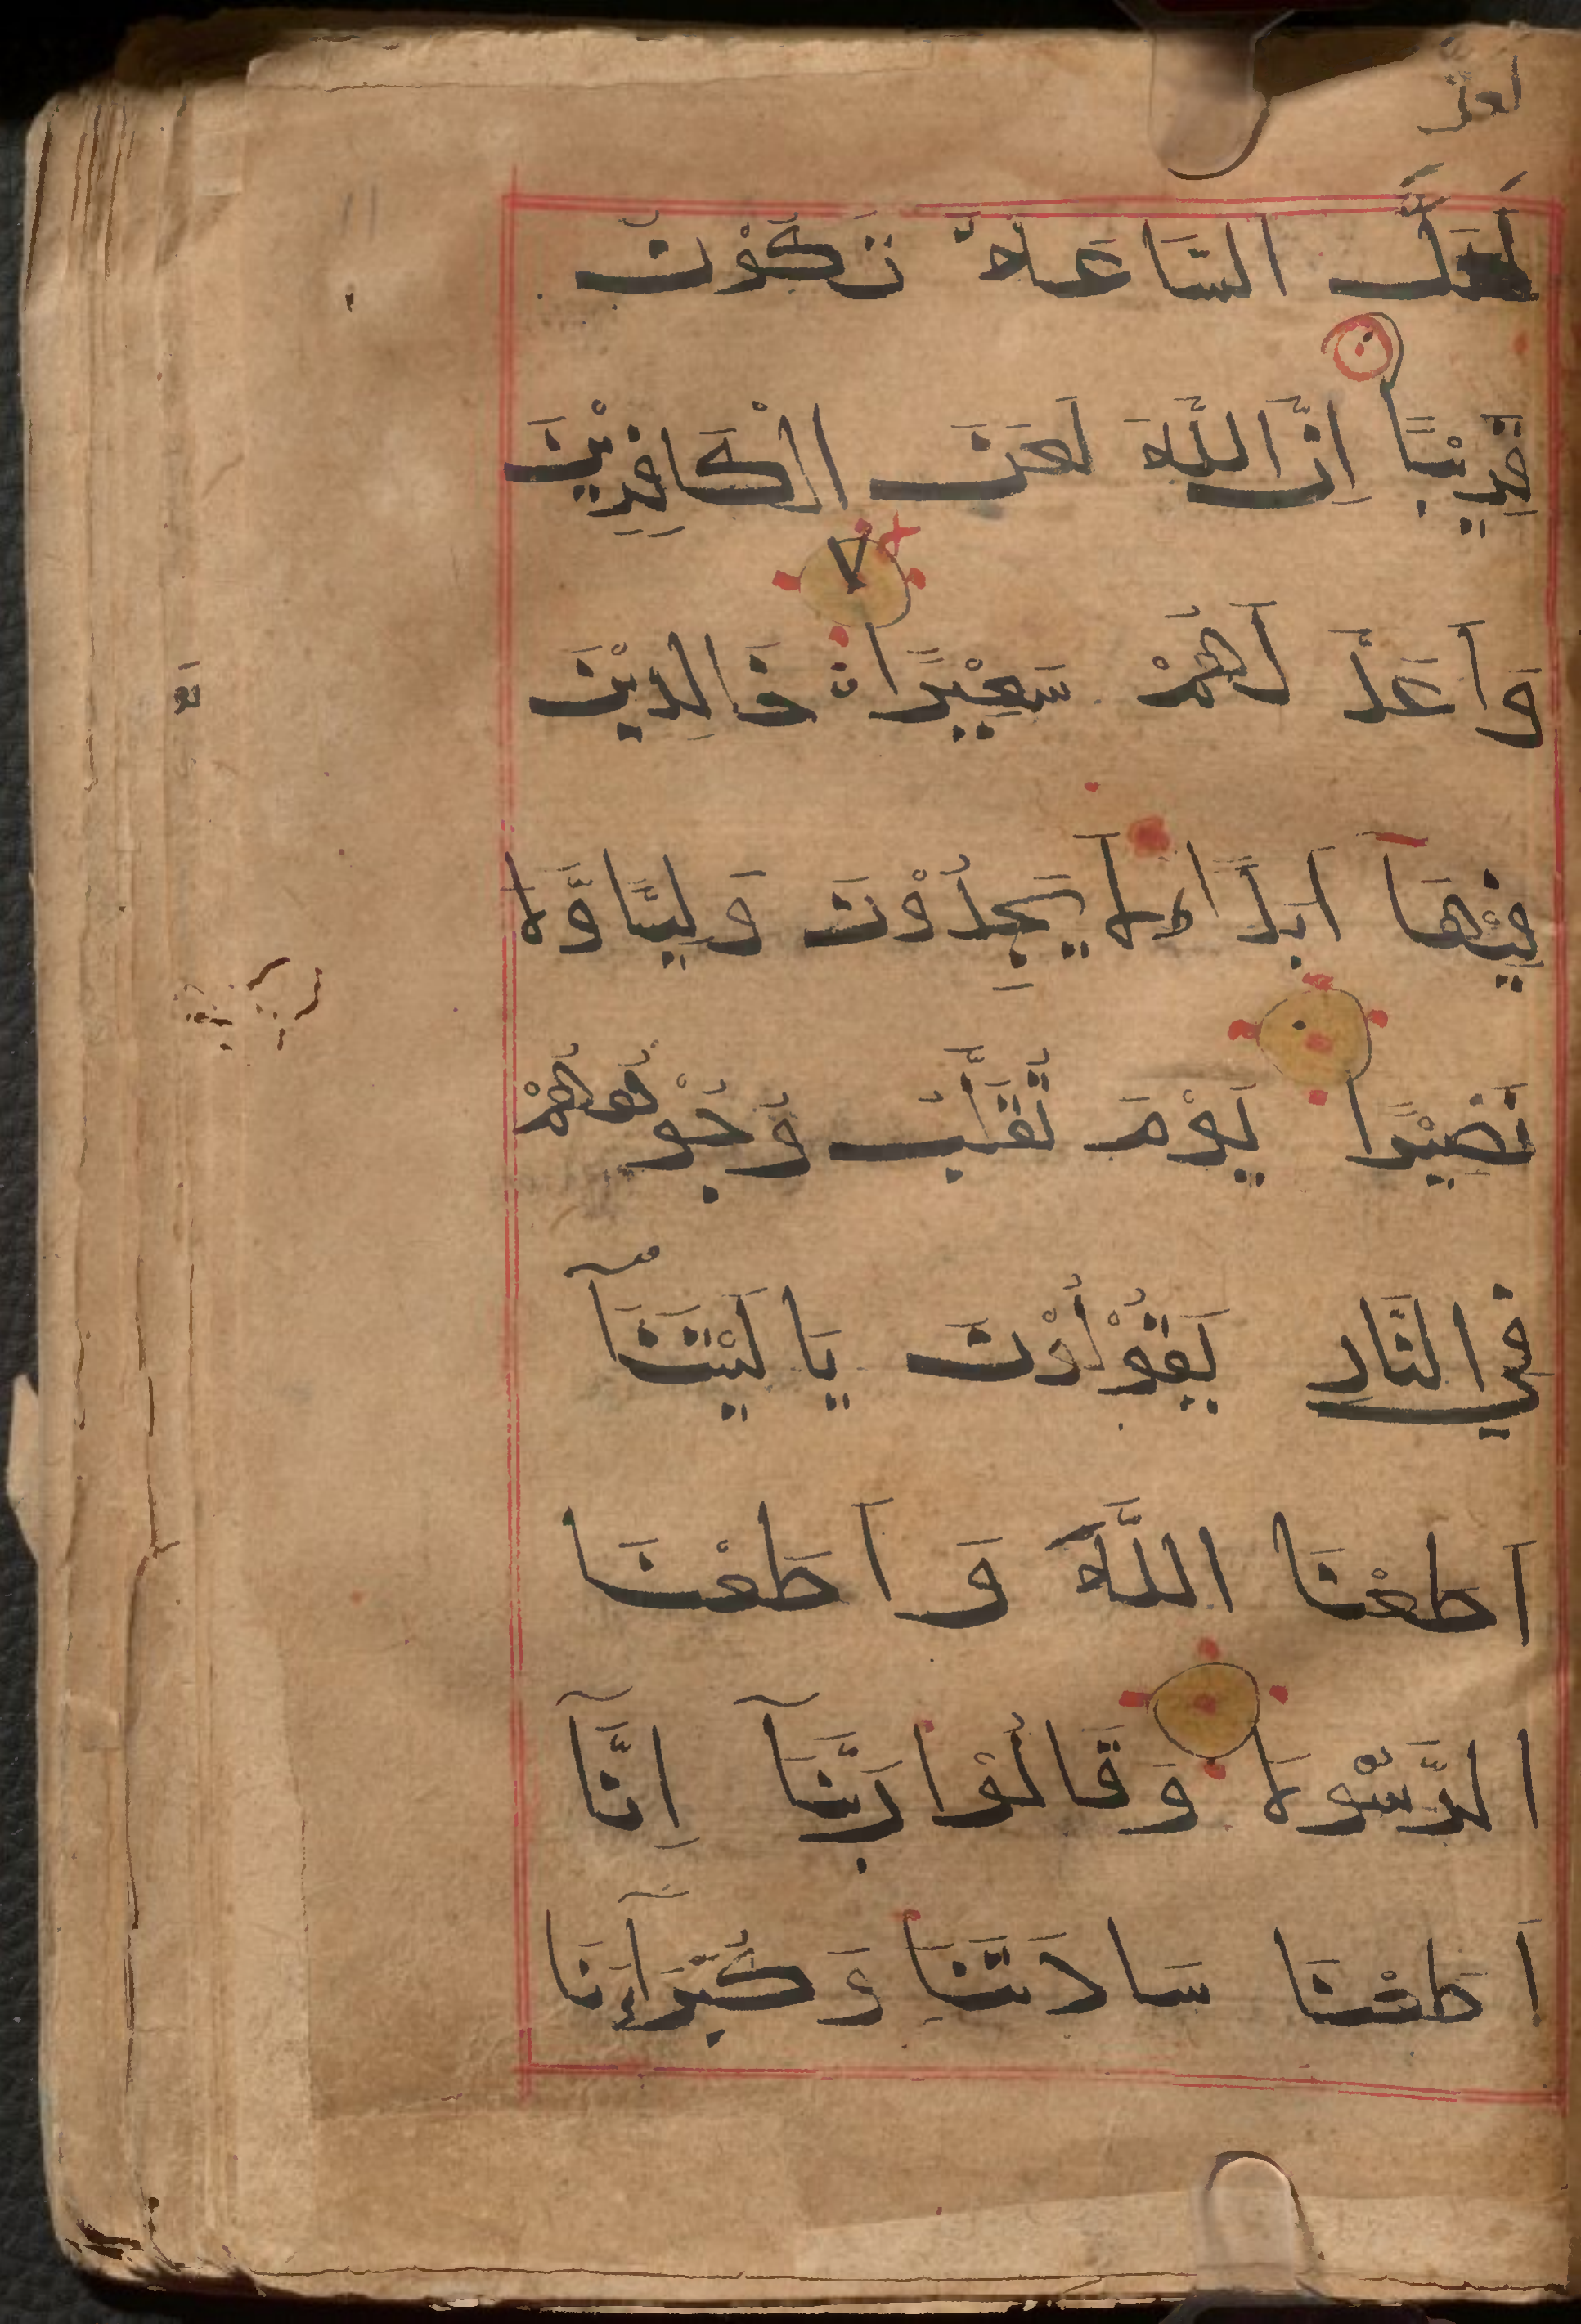 لَعَلَّ
لَعَلَّ السَّاعَةَ تَكُوْنُ
قَرِيْبًا اِنَّ اللَّهَ لَعَنَ الْكَافِرِيْنَ
وَاَعَدَّ لَهُمْ سَعِيْرًا خَالِدِيْنَ
فِيْهَا اَبَدًا لَا يَجِدُوْنَ وَلِيًّا وَّلَا
نَصِيْرًا يَوْمَ تُقَلَّبُ وُجُوْهُهُمْ
فِي النَّارِ يَقُوْلُوْنَ يَا لَيْتَنَآ
اَطَعْنَا اللَّهَ وَاَطَعْنَا
الرَّسُوْلَا وَقَالُوْا رَبَّنَآ اِنَّآ
اَطَعْنَا سَادَتَنَا وَكُبَرَآءَنَا